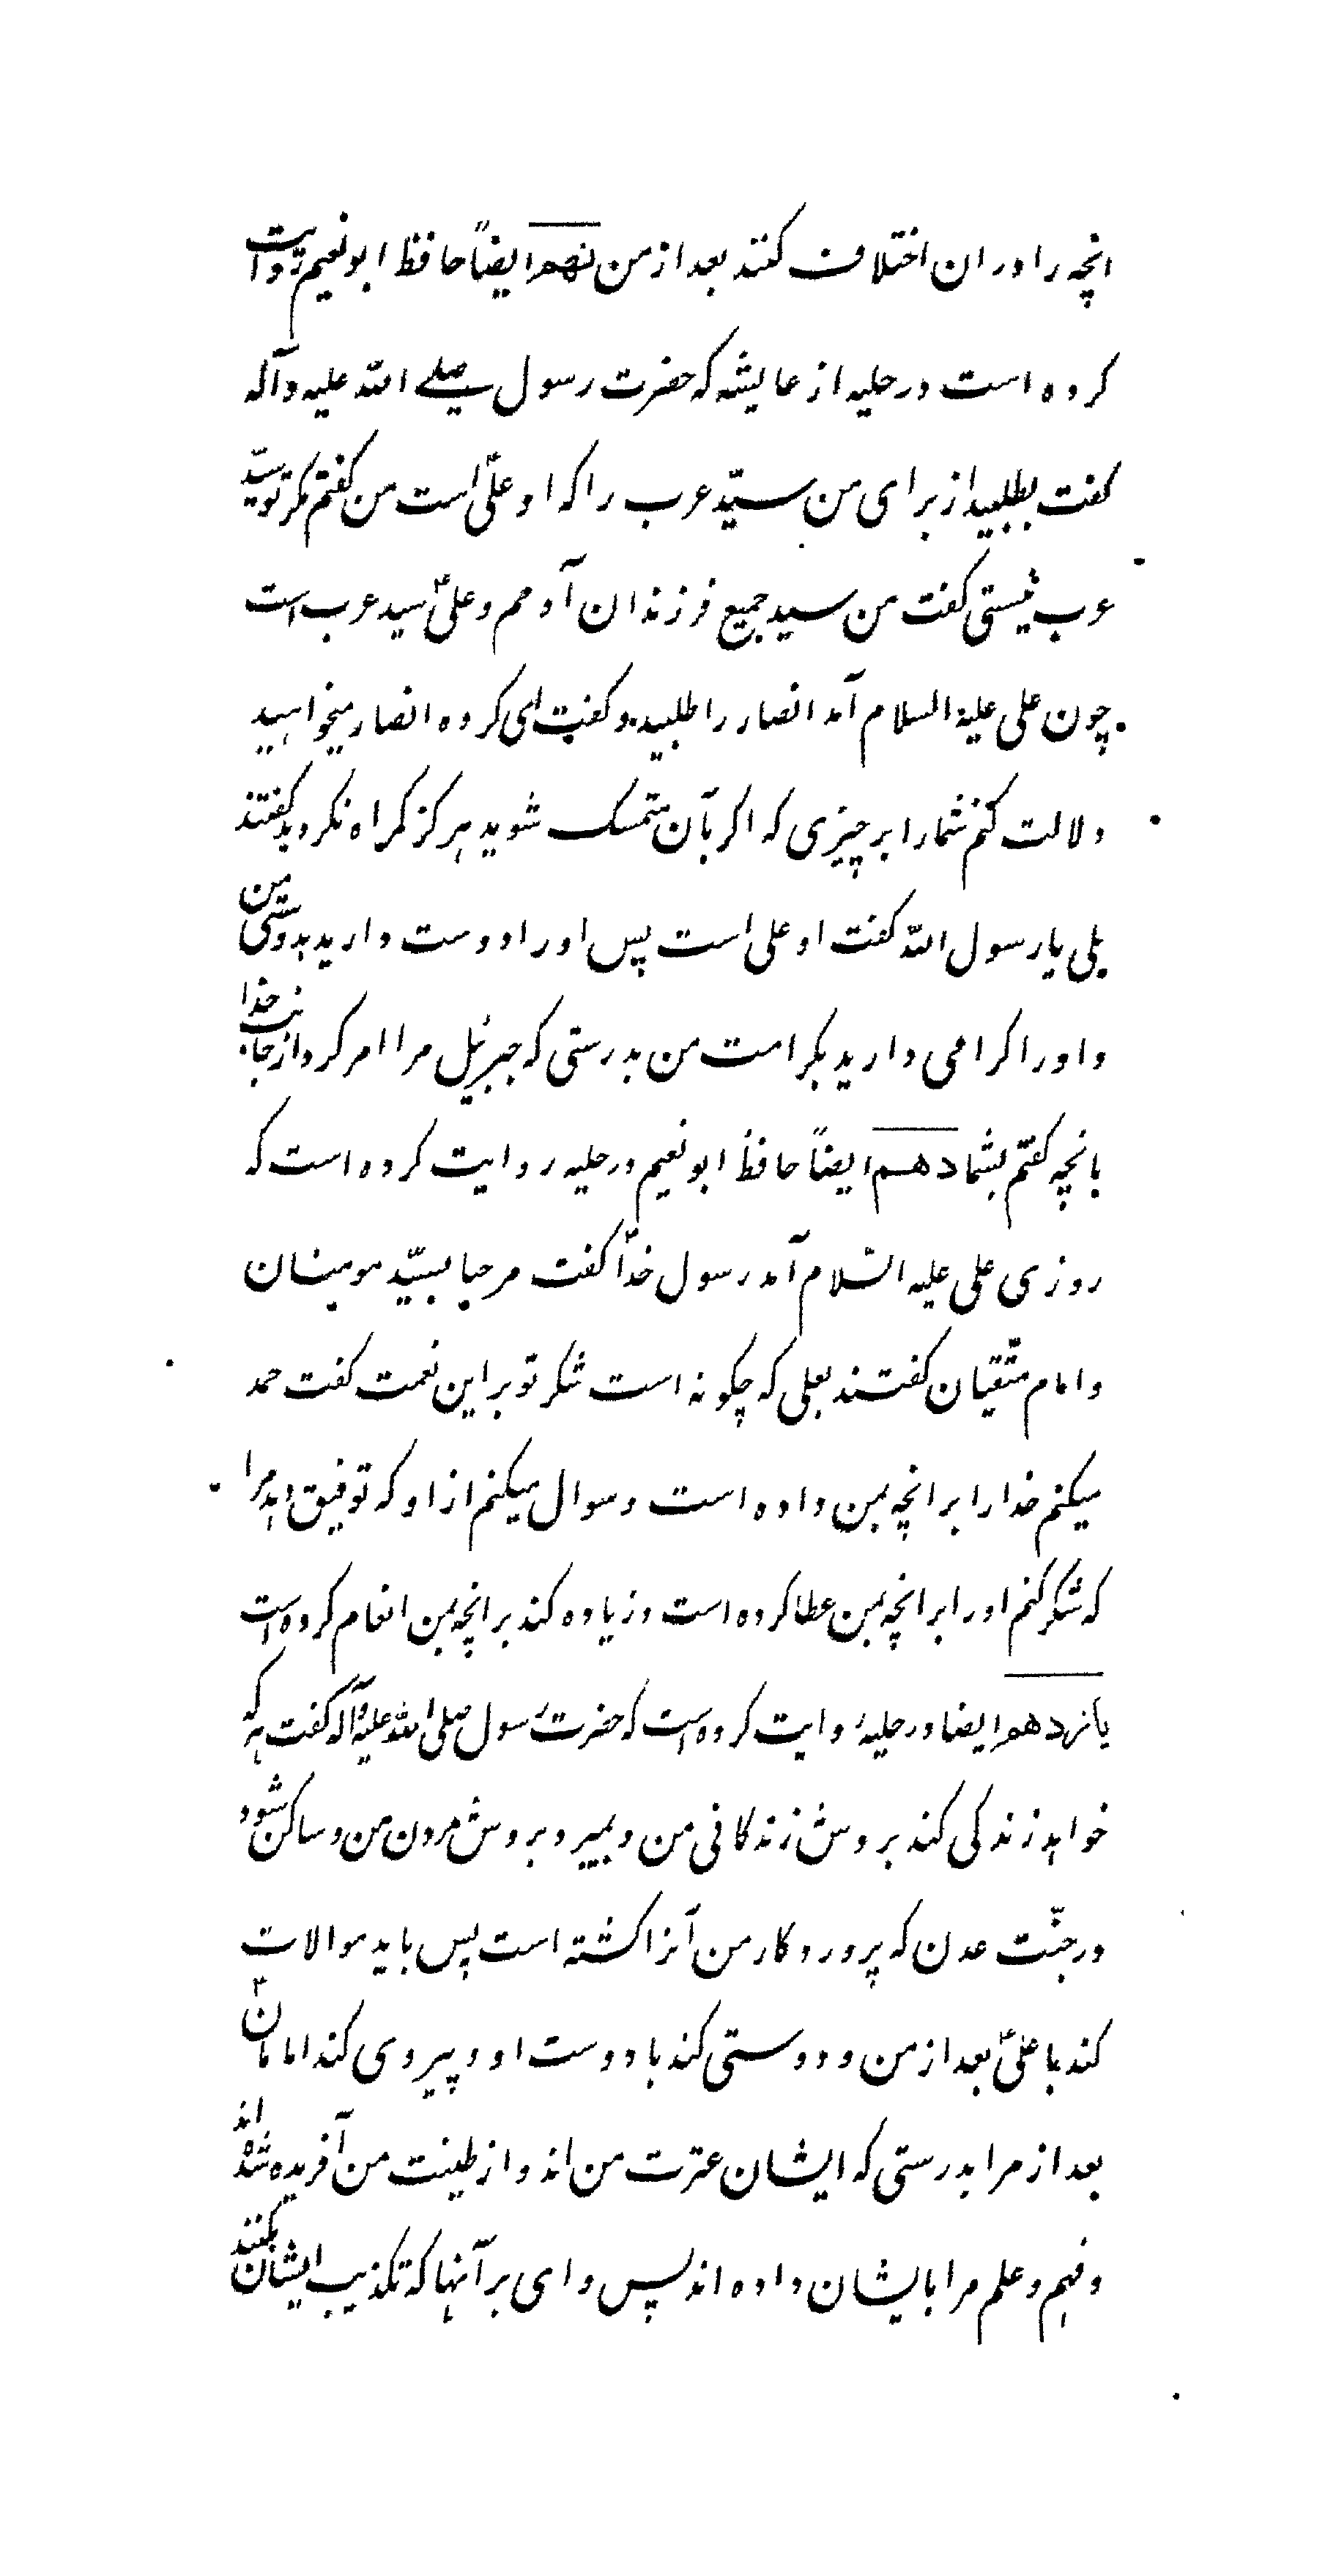 انچه را در ان اختلاف کنند بعد از من نهم ایضاً حافظ ابو نعیم روایت
کرده است در حلیه از عایشه که حضرت رسول صلے الله علیه وآله
کفت بطلبید از برای من سیّد عرب را که او علیؑ است من کفتم مکر تو سیّد
عرب نیستی کفت من سید جمیع فرزندان آدمم و علیؑ سید عرب است
چون علی علیه السلام آمد انصار را طلبید و کفت ای کروه انصار میخواهید
دلالت کنم شما را بر چیزی که اکر بآن متمسک شوید هرکز کمراه نکردید کفتند
بلی یا رسول الله کفت او علی است پس او را دوست دارید بدوستی من
و او را کرامی دارید بکرامت من بدرستی که جبرئیل مرا امر کرد از جانب خدا
بانچه کفتم بشما دهم ایضاً حافظ ابو نعیم در حلیه روایت کرده است که
روزی علی علیه السّلام آمد رسول خداؐ کفت مرحبا بسیّد مومنان
و امام متّقیان کفتند بعلی که چکونه است شکر تو بر این نعمت کفت حمد
میکنم خدا را بر انچه بمن داده است و سوال میکنم از او که توفیق دهد مرا
که شکر کنم او را بر انچه بمن عطا کرده است و زیاده کند بر انچه بمن انعام کرده است
یازدهم ایضا در حلیه روایت کرده است که حضرت رسول صلی الله علیه وآله کفت هر که
خواهد زندکی کند بروش زندکانی من و بمیرد بروش مردن من و ساکن شود
در جنّت عدن که پروردکار من آنرا کشته است پس باید موالات
کند با علیؑ بعد از من و دوستی کند با دوست او و پیروی کند امامانؑ
بعد از مرا بدرستی که ایشان عترت من اند و از طینت من آفریده شده اند
و فهم و علم مرا بایشان داده اند پس وای بر آنها که تکذیب ایشان کنند